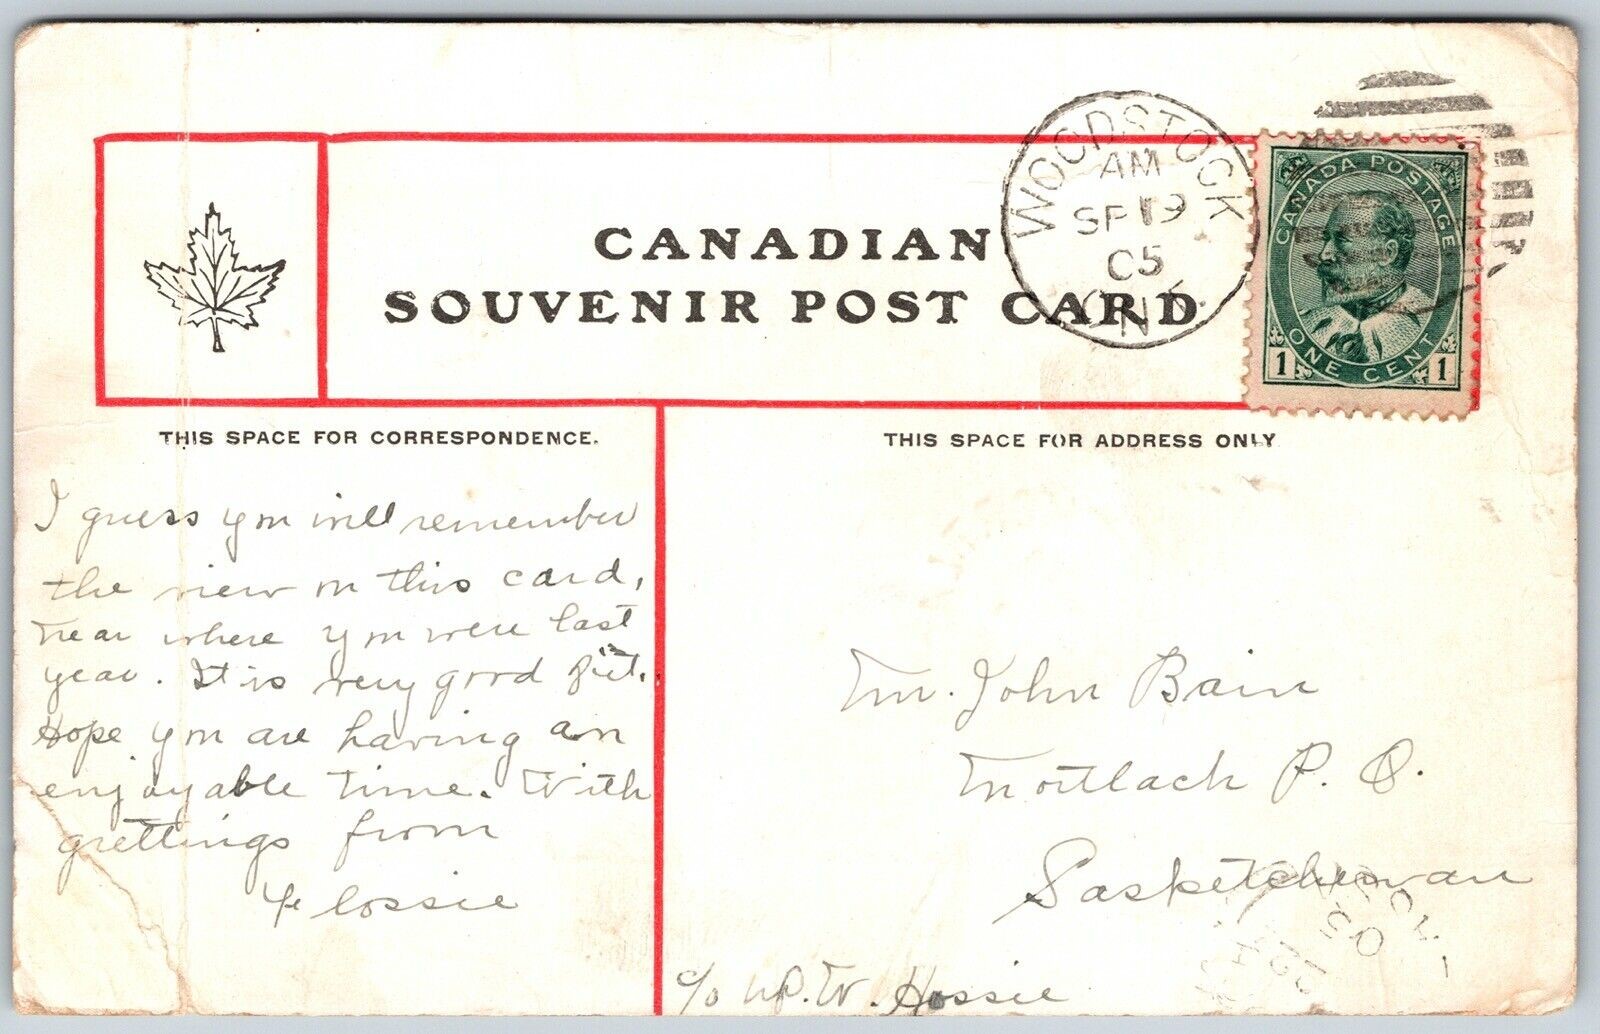 CANADIAN
SOUVENIR POST CARD
WOODSTOCK
AM
SP 19
05
ONT.
CANADA POSTAGE
1 ONE CENT 1
THIS SPACE FOR CORRESPONDENCE.
I guess you will remember
the view on this card,
near where you were last
year. It is very good pict.
Hope you are having an
enjoyable time. With
grettings from
Flossie
THIS SPACE FOR ADDRESS ONLY
Mr. John Bain
Mortlach P. O.
Sasketchewan
c/o W. Hossie
05